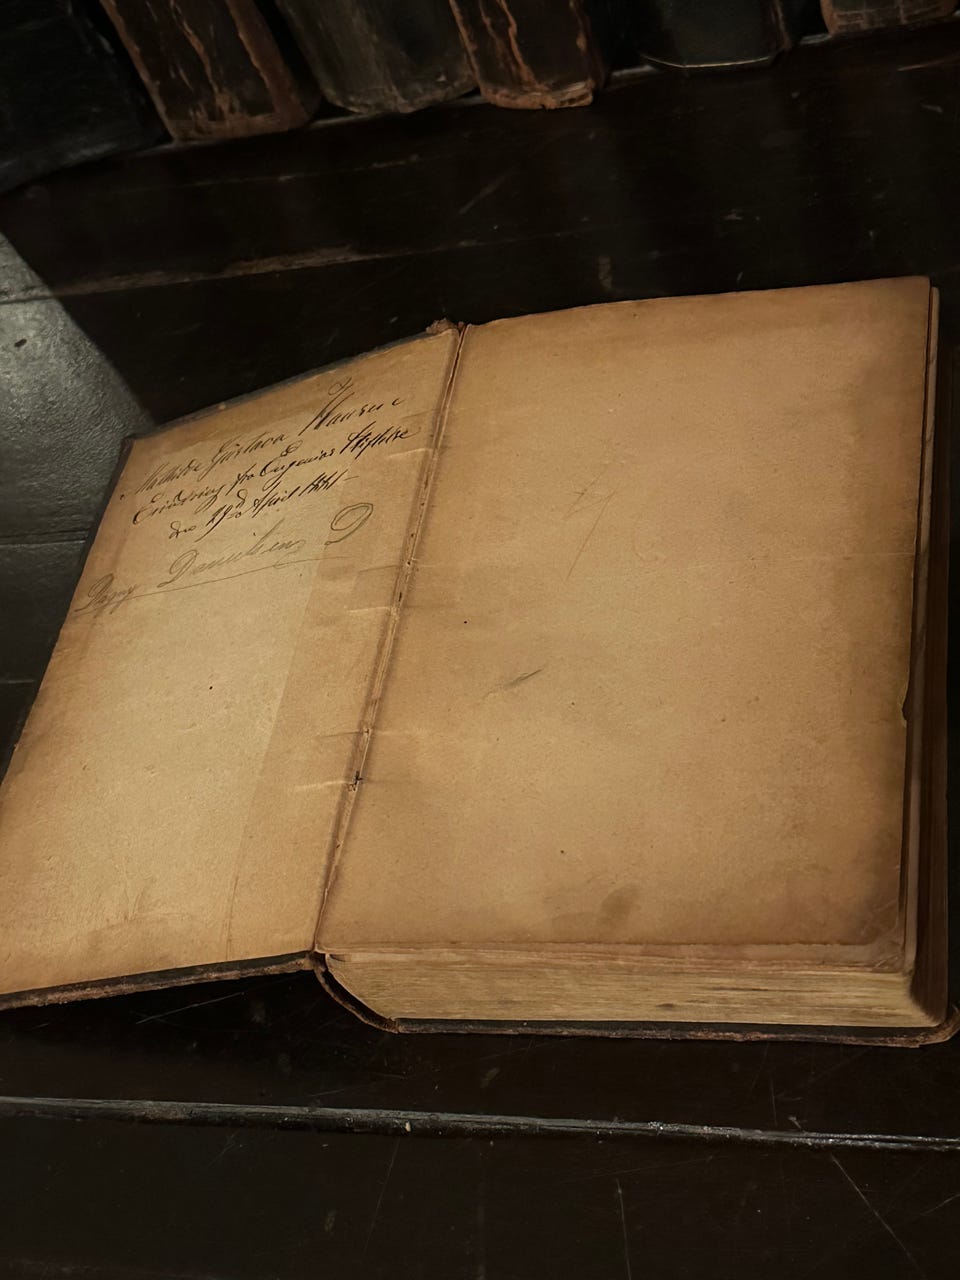 Mathilde Gustava Hansen
Erindring fra Eugenias Stiftelse
den 29d April 1881
Dagny Danielsen D